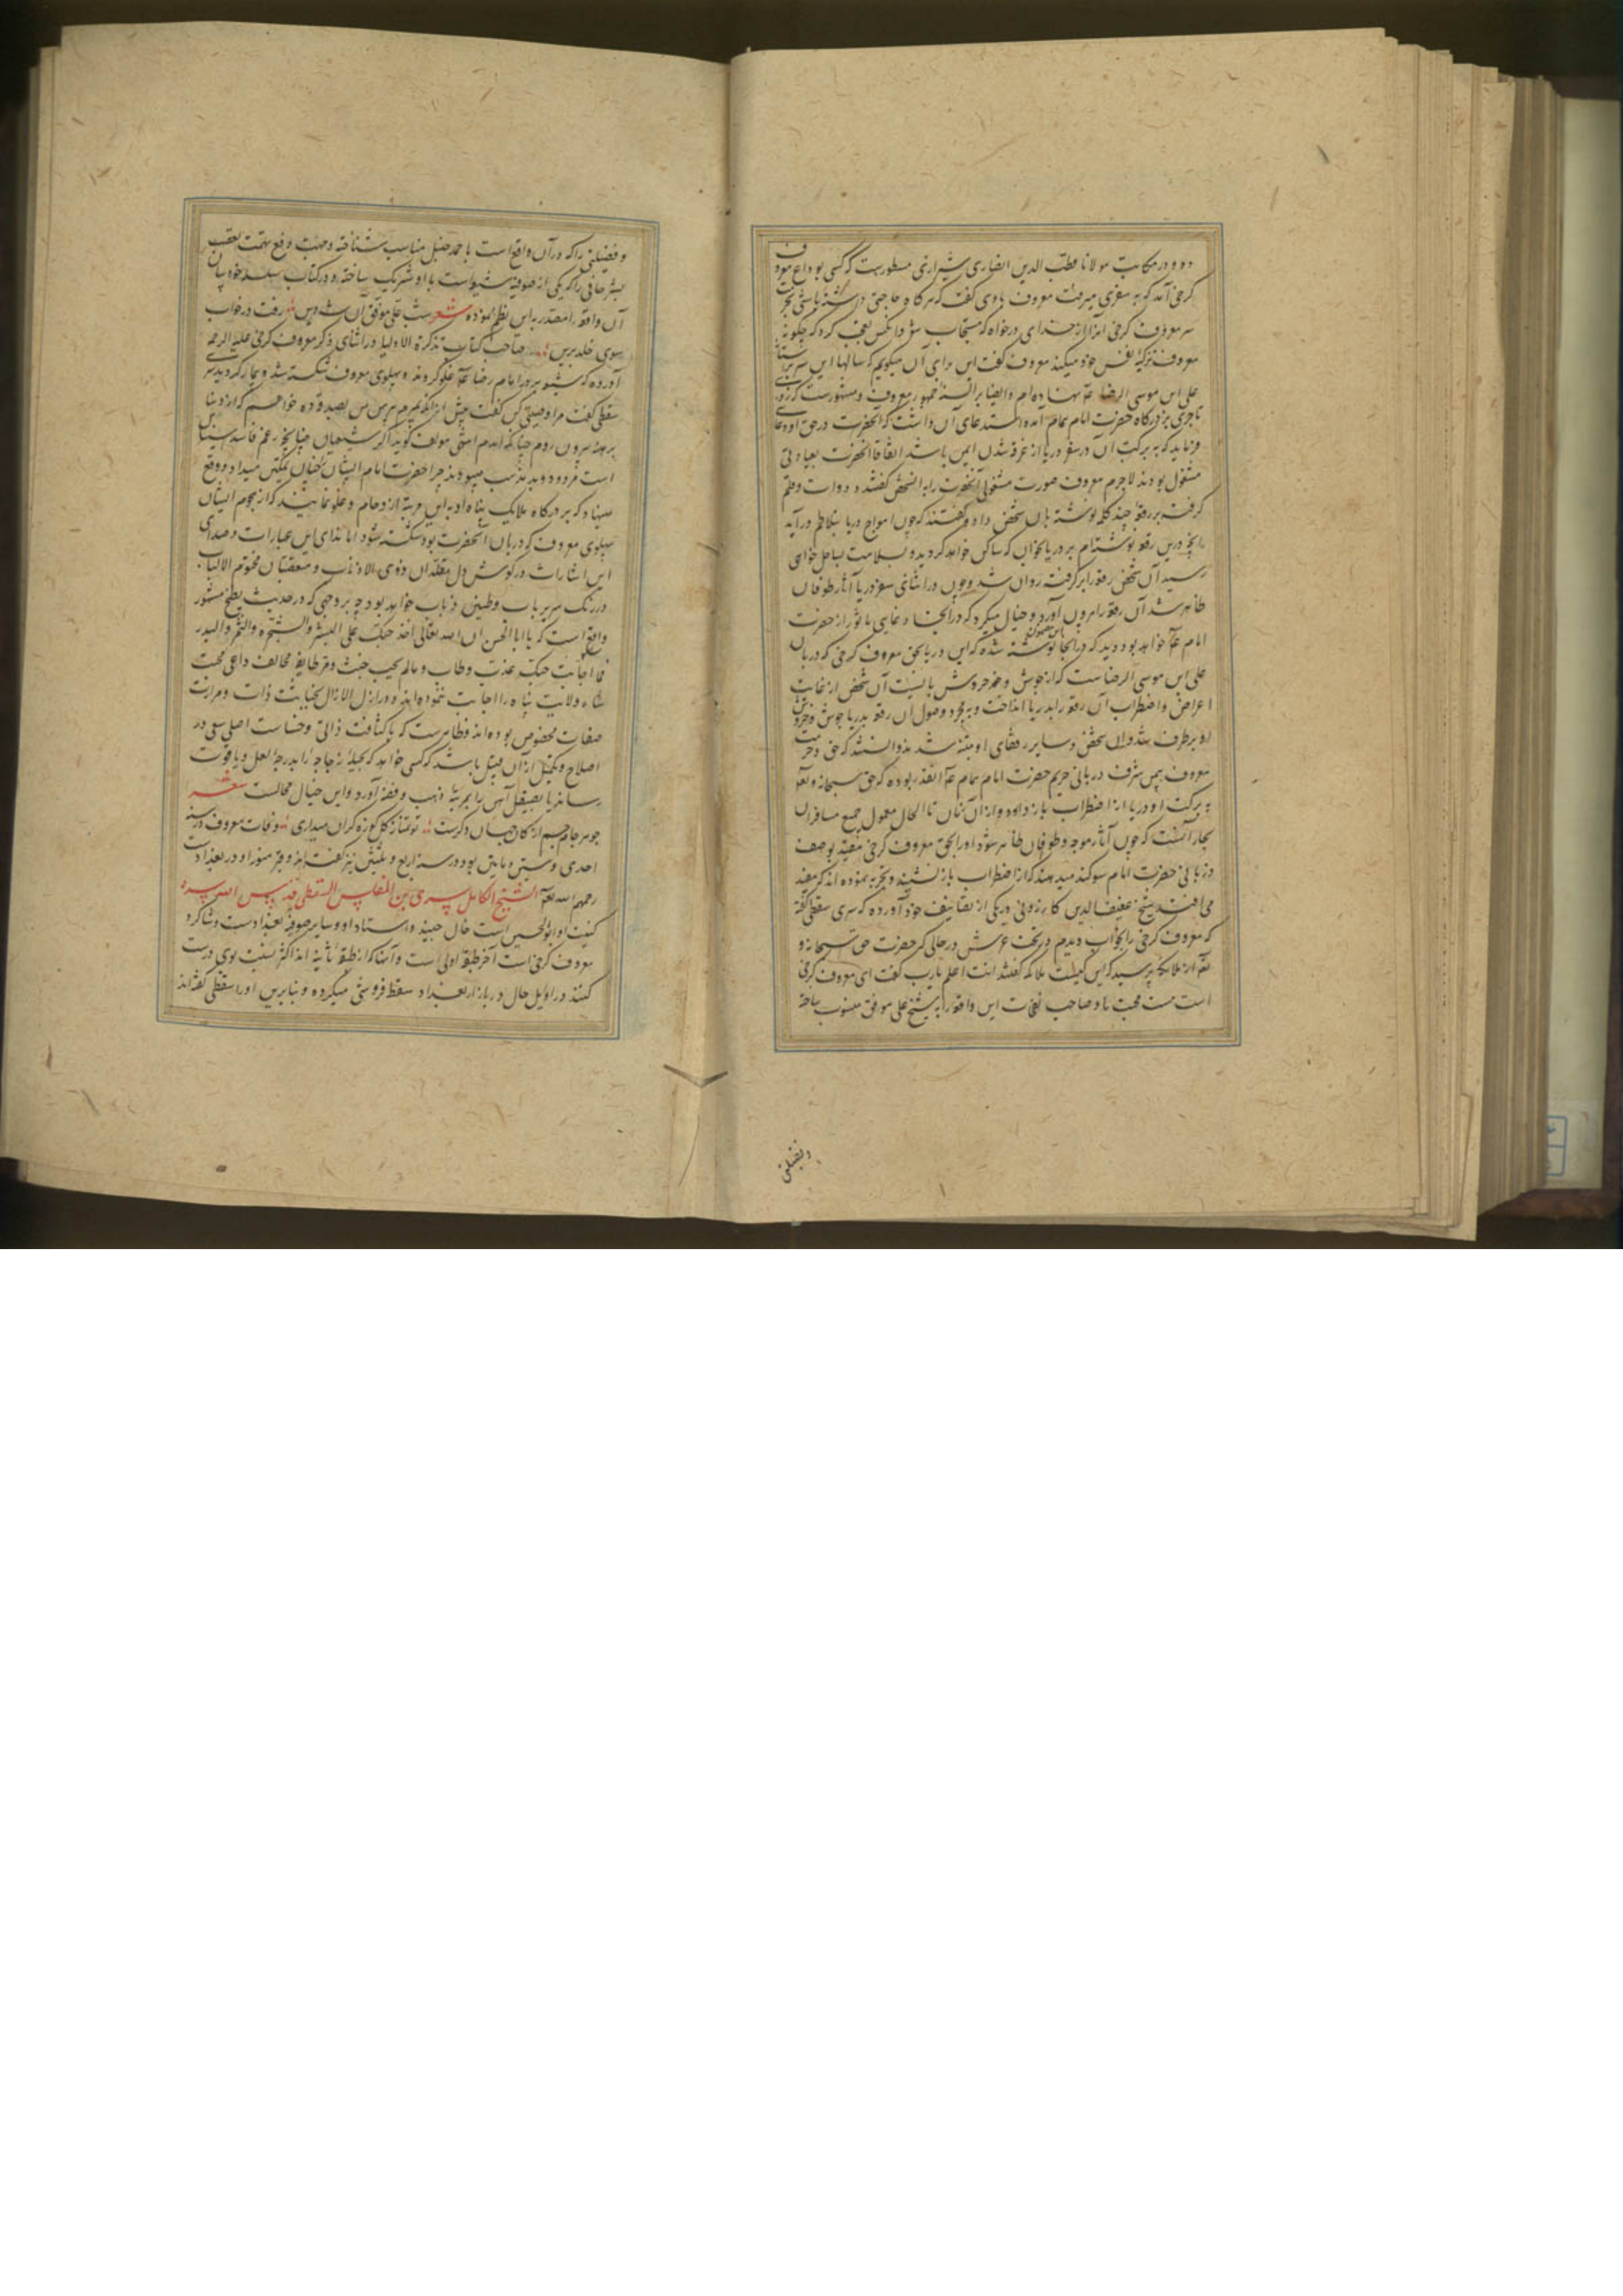 و در مکاتیب مولانا قطب الدین انصاری شیرازی مسطورست که کسی بوداع معروف
کرخی آمد که به سفری میرفت معروف باوی گفت که هرگاه حاجتی داشته باشی بحق
سر معروف کرخی آنرا از خدای درخواه که مستجاب شود آنکس تعجب کرد که چگونه
معروف تزکیه نفس خود میکند معروف گفت این برای آن میگویم که سالها این سر بر آستان
علی ابن موسی الرضا نهاده‌ام و ایضا بر السنه جمهور معروف و مشهورست که روزی
تاجری بر درگاه حضرت امام همام آمده استدعای آن داشت که آنحضرت در حق او دعای
فرماید که به برکت آن در سفر دریا از غرق شدن ایمن باشد اتفاقا آنحضرت بعبادتی
مشغول بودند لاجرم معروف صورت مشغولی آنحضرت را به آنشخص گفته و دوات و قلم
گرفت بر رقعه چند کلمه نوشته بآن شخص داد و گفتند که چون امواج دریا بتلاطم درآید
آنچه درین رقعه نوشته‌ام بر دریا بخوان که ساکن خواهد گردید و بسلامت بساحل خواهی
رسید آن شخص رقعه را برگرفت روان شد و چون در اثنای سفر دریا آثار طوفان
ظاهر شد آن رقعه را بیرون آورد و خیال میکرد که در آنجا دعایی ماثور از حضرت
امام خواهد بود دید که در آنجا این مضمون نوشته شده که ای دریا بحق معروف کرخی که دربان
علی ابن موسی الرضاست که از جوش و خروش باز ایست آن شخص از غایت
اعراض و اضطراب آن رقعه را بدریا انداخت و به مجرد وصول آن رقعه بدریا جوش و خروش
او برطرف شد و آن شخص و سایر رفقای او متنبه شدند و دانستند که حق و حرمت
معروف بیمن شرف دربانی حریم حضرت امام همام آنقدر بوده که حق سبحانه و تعالی
به برکت او دریا را از اضطراب باز داده و از آن زمان تا الحال معمول جمع مسافران
بحار آنست که چون آثار موجه و طوفان ظاهر شود او را بحق معروف کرخی مقید بوصف
دربانی حضرت امام سوگند میدهند که از اضطراب باز نشیند و تجربه نموده‌اند که مفید
می افتد شیخ عفیف الدین کازرونی در یکی از تصانیف خود آورده که سری سقطی گفته
که معروف کرخی را بخواب دیدم در تحت عرش در حالی که حضرت حق سبحانه و
تعالی از ملائکه پرسید که این کیست ملائکه گفتند انت اعلم یا رب گفت ای معروف کرخی
است مست محبت ما و صاحب نفحات این واقعه را به شیخ علی موفق منسوب ساخته
و فضیلتی
و فضیلتی را که در آن واقع است باحمد حنبل مناسب شناخته و جهت دفع تهمت تعصب
بشر حافی را که یکی از صوفیه شیعه است با او شریک ساخته و در کتاب سلسله خود بیان
آن واقعه را مصدر به این نظم نموده شعر شب علی موفق آن شه دین رفت در خواب
سوی خلد برین صاحب کتاب تذکرة الاولیا در اثنای ذکر معروف کرخی علیه الرحمه
آورده که شیعه بر در امام رضا غلو کردند و پهلوی معروف شکسته شد و بیمار گردید سری
سقطی گفت مرا وصیتی کن گفت چون از آنکه بمیرم پیرهن من بصدقه ده خواهم که از دنیا
برهنه بیرون روم چنانکه آمدم انتهی مولف گوید اگر شیعیان چنانچه زعم فاسد سنیان
است مردود و بد مذهب میبودند چرا حضرت امام ایشان را چنان تمکین میداد و وقع
مینهاد که بر درگاه ملایک پناه او به این مرتبه ازدحام و غلو نمایند که از هجوم ایشان
پهلوی معروف که دربان آنحضرت بود شکسته شود اما ندای این عبارات و صدای
این اشارات در گوش دل مقلدان ذوی الاذناب و متعصبان مختوم الالباب
در رنگ سریر باب و طنین ذباب خواهد بود چه بر وجهی که در حدیث بطیخ مشهور
واقع است که یا ابا الحسن ان الله تعالی اخذ حبک علی البشر و الشجر و الثمر و البدر
فما اجابت حبک عذب و طاب و ما لم یجب خبث و مر طایفه مخالف داعی محبت
شاه ولایت پناه را اجابت ننموده‌اند و در ازل الازال بخباثت ذات و مرارت
صفات مخصوص بوده‌اند و ظاهرست که با کثافت ذاتی و خساست اصلی سعی در
اصلاح و تکمیل از آن قبیل باشد که کسی خواهد که بحیله زجاجه را بدرجه لعل و یاقوت
رساند یا بصیقل آهن را بمرتبه ذهب و فضه آورد و این خیال محالست شعر
جوهر جام جم از کان جهان دگرست تو تمنا ز گل کوزه گران میداری وفات معروف در سنه
احدی و ستین و مایتین بود و در سنه اربع و ثلثین نیز گفته‌اند و قبر منور او در بغدادست
رحمه الله تعالی الشیخ الکامل سری بن المغلس السقطی قدس الله سره
کنیت او ابوالحسین است خال جنید و استاد او و سایر صوفیه بغدادست و شاگرد
معروف کرخی است آخر طبقه اولی است و آنها که از طبقه ثانیه‌اند اکثر نسبت بوی درست
کنند در اوایل حال در بازار بغداد سقط فروشی میکرده و بنابرین او را سقطی گفته‌اند